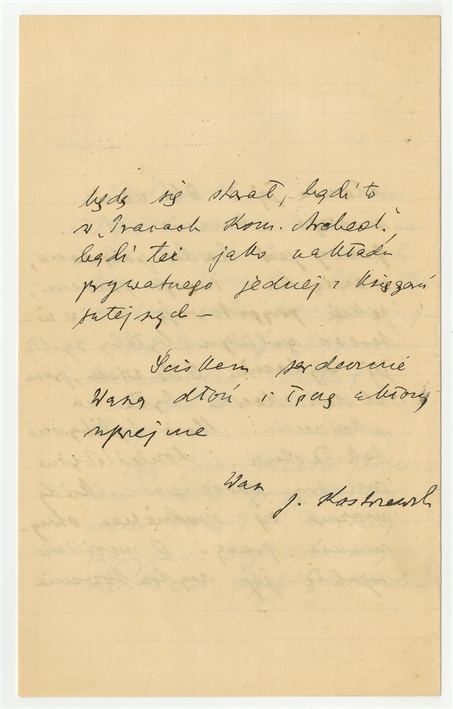 będę się starał, bądź to
w „Pracach Kom. Archeol."
bądź też jako nakładu
prywatnego jednej z księgarń
tutejszych –
Ściskam serdecznie
Waszą dłoń i łączę ukłony
uprzejme
Wasz
J. Kostrzewski